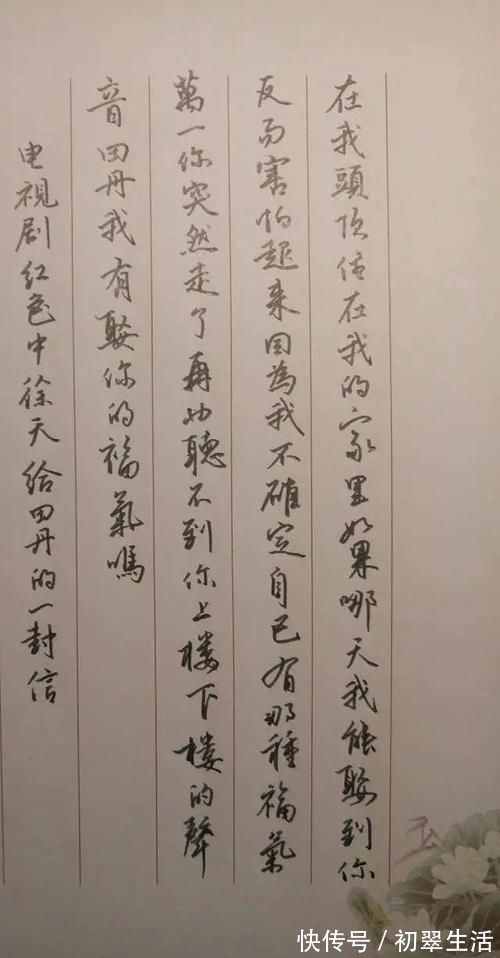 在我頭頂住在我的家里如果哪天我能娶到你
反而害怕起来因為我不確定自己有那種福氣
萬一你突然走了再也聽不到你上楼下楼的聲
音田丹我有娶你的福氣嗎
电視剧红色中徐天给田丹的一封信
快传号/初翠生活